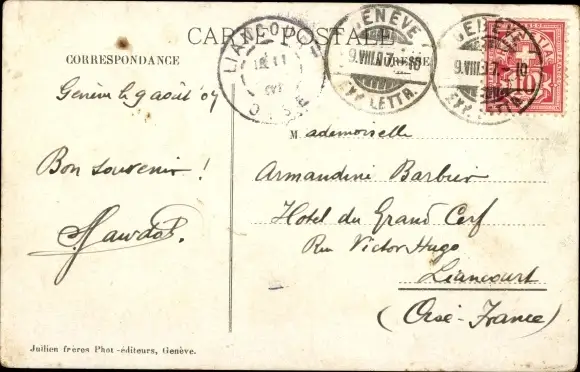 CARTE POSTALE
CORRESPONDANCE
ADRESSE
LIANCOURT
OISE
GENÈVE
9.VIII.07. 10
EXP. LETTR.
GENÈVE
9.VIII.07. 10
EXP. LETTR.
10
Genève le 9 août 07
Bon souvenir !
Mademoiselle
Armandine Barbier
Hotel du Grand Cerf
Rue Victor Hugo
Liancourt
(Oise-France)
Jullien frères Phot-éditeurs, Genève.